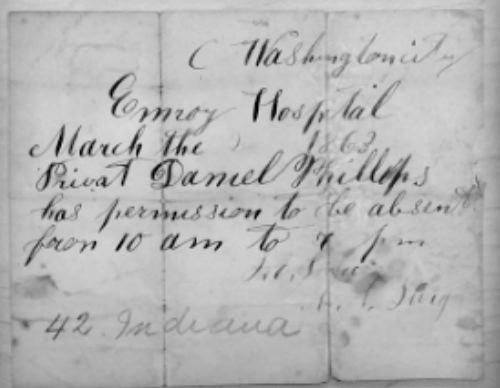 ( Washington city
Emroy Hospital
March the ) 1863
Privat Daniel Phillips
has permission to be absent
from 10 am to pm
42 Indiana